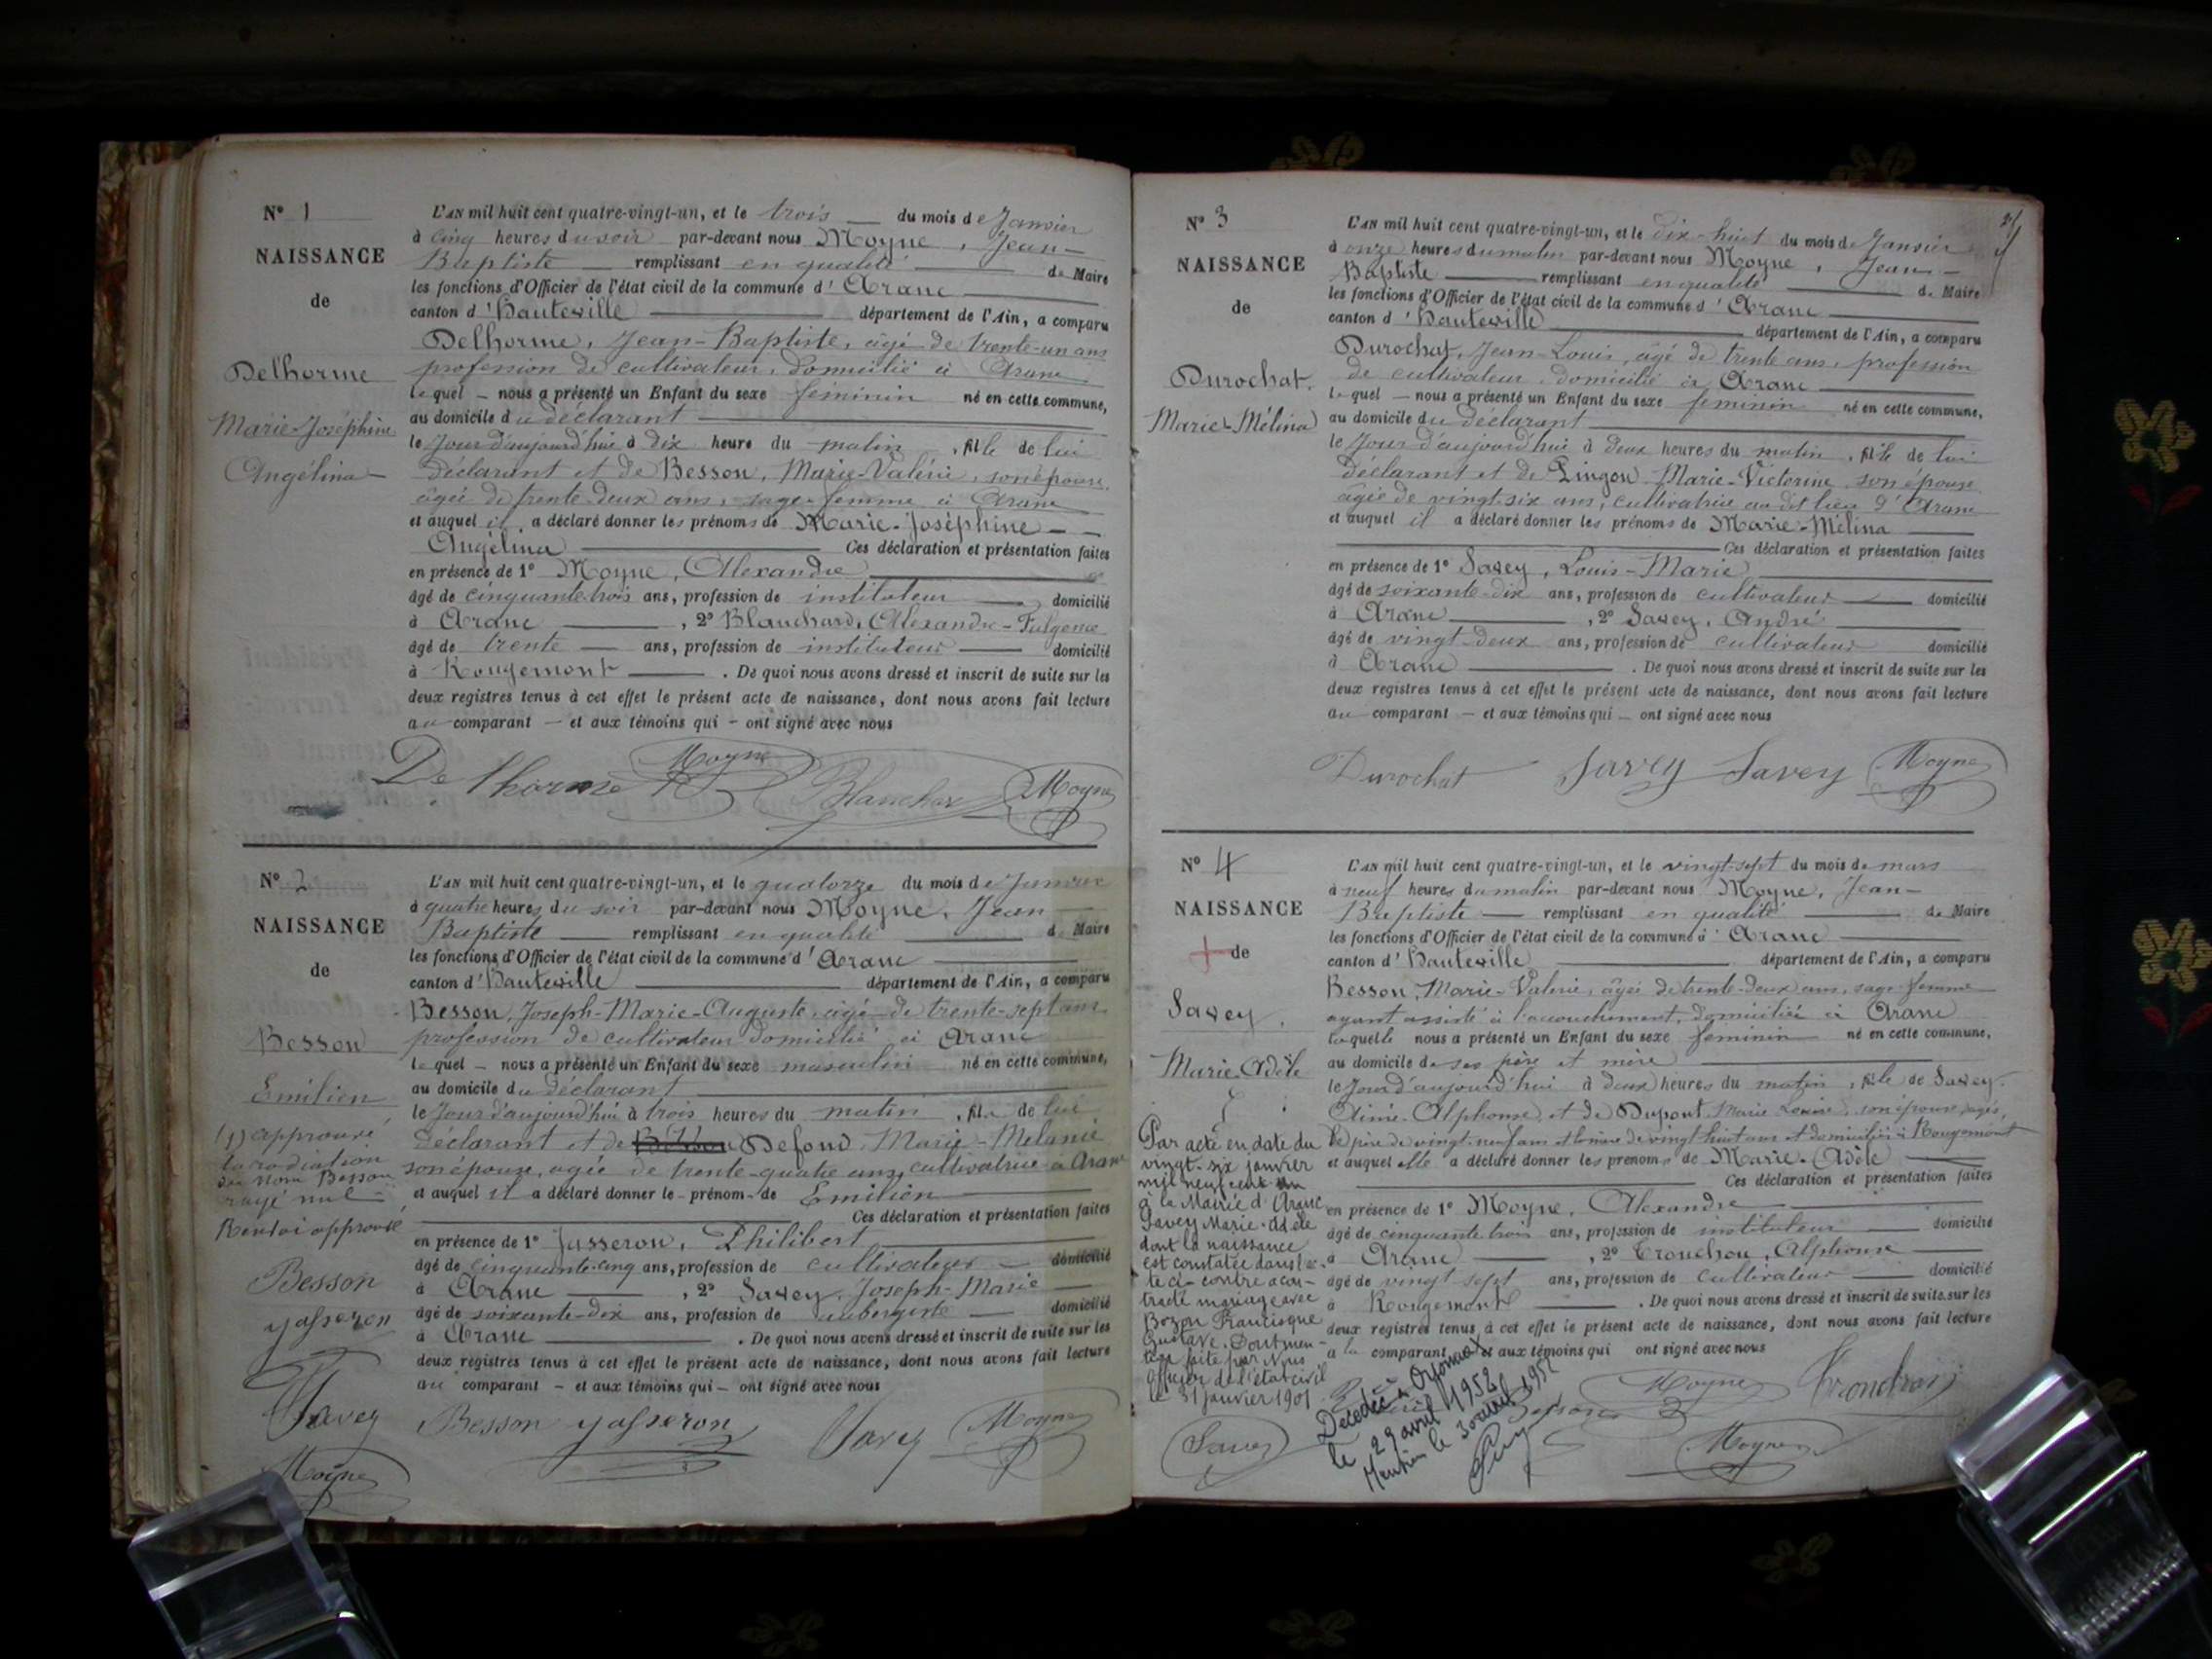 N° 1
NAISSANCE
de
Delhorme
Marie-Joséphine
Angélina
L'AN mil huit cent quatre-vingt-un, et le trois du mois de Janvier
à cinq heures du soir par-devant nous Moyne, Jean-
Baptiste remplissant en qualité de Maire
les fonctions d'Officier de l'état civil de la commune d'Aranc
canton d'Hauteville département de l'Ain, a comparu
Delhorme, Jean-Baptiste, âgé de trente-un ans
profession de cultivateur, domicilié à Aranc
lequel nous a présenté un Enfant du sexe féminin né en cette commune,
au domicile du déclarant
le jour d'aujourd'hui à dix heure du matin, fille de lui
déclarant et de Besson, Marie-Valérie, son épouse,
âgée de trente-deux ans, sage-femme à Aranc
et auquel il a déclaré donner les prénoms de Marie-Joséphine-
Angélina Ces déclaration et présentation faites
en présence de 1° Moyne, Alexandre
âgé de cinquante-trois ans, profession de instituteur domicilié
à Aranc, 2° Blanchard, Alexandre-Fulgence
âgé de trente ans, profession de instituteur domicilié
à Rougemont. De quoi nous avons dressé et inscrit de suite sur les
deux registres tenus à cet effet le présent acte de naissance, dont nous avons fait lecture
au comparant et aux témoins qui ont signé avec nous
Delhorme Moyne Blanchard Moyne
N° 2
NAISSANCE
de
Besson
Emilien
(1) approuvé
la radiation
du nom Besson
rayé nul
Renvoi approuvé
Besson
yasseron
Savey
Moyne
L'AN mil huit cent quatre-vingt-un, et le quatorze du mois de Janvier
à quatre heures du soir par-devant nous Moyne, Jean
Baptiste remplissant en qualité de Maire
les fonctions d'Officier de l'état civil de la commune d'Aranc
canton d'Hauteville département de l'Ain, a comparu
Besson, Joseph-Marie-Auguste, âgé de trente-sept ans
profession de cultivateur domicilié à Aranc
lequel nous a présenté un Enfant du sexe masculin né en cette commune,
au domicile du déclarant
le jour d'aujourd'hui à trois heures du matin, fils de lui
déclarant et de Besson Defond Marie-Mélanie
son épouse, agée de trente-quatre ans, cultivatrice à Aranc
et auquel il a déclaré donner le prénom de Emilien
Ces déclaration et présentation faites
en présence de 1° Jasseron, Philibert
âgé de cinquante-cinq ans, profession de cultivateur domicilié
à Aranc, 2° Savey, Joseph-Marie
âgé de soixante-dix ans, profession de aubergiste domicilié
à Aranc. De quoi nous avons dressé et inscrit de suite sur les
deux registres tenus à cet effet le présent acte de naissance, dont nous avons fait lecture
au comparant et aux témoins qui ont signé avec nous
Besson yasseron Savey Moyne
N° 3
NAISSANCE
de
Durochat.
Marie-Mélina
L'AN mil huit cent quatre-vingt-un, et le dix-huit du mois de Janvier
à onze heures du matin par-devant nous Moyne, Jean-
Baptiste remplissant en qualité de Maire
les fonctions d'Officier de l'état civil de la commune d'Aranc
canton d'Hauteville département de l'Ain, a comparu
Durochat, Jean-Louis, âgé de trente ans, profession
de cultivateur, domicilié à Aranc
lequel nous a présenté un Enfant du sexe féminin né en cette commune,
au domicile du déclarant
le jour d'aujourd'hui à deux heures du matin, fille de lui
déclarant et de Lingon Marie-Victorine son épouse
âgée de vingt-six ans, cultivatrice au dit lieu d'Aranc
et auquel il a déclaré donner les prénoms de Marie-Mélina
Ces déclaration et présentation faites
en présence de 1° Savey, Louis-Marie
âgé de soixante-dix ans, profession de cultivateur domicilié
à Aranc, 2° Savey, André
âgé de vingt-deux ans, profession de cultivateur domicilié
à Aranc. De quoi nous avons dressé et inscrit de suite sur les
deux registres tenus à cet effet le présent acte de naissance, dont nous avons fait lecture
au comparant et aux témoins qui ont signé avec nous
Durochat Savey Savey Moyne
N° 4
NAISSANCE
de
Savey,
Marie-Adèle
Par acte en date du
vingt-six janvier
mil neuf cent un
à la Mairie d'Aranc
Savey Marie-Adèle
dont la naissance
est constatée dans l'ac-
te ci-contre a con-
tracté mariage avec
Bozon Francisque
Gustave. Dont men-
tion faite par Nous
Officier de l'état civil
le 31 janvier 1901
Savey
L'AN mil huit cent quatre-vingt-un, et le vingt-sept du mois de mars
à neuf heures du matin par-devant nous Moyne, Jean-
Baptiste remplissant en qualité de Maire
les fonctions d'Officier de l'état civil de la commune d'Aranc
canton d'Hauteville département de l'Ain, a comparu
Besson, Marie-Valérie, âgée de trente-deux ans, sage-femme
ayant assisté à l'accouchement, domiciliée à Aranc
laquelle nous a présenté un Enfant du sexe féminin né en cette commune,
au domicile de ses père et mère
le jour d'aujourd'hui à deux heures du matin, fille de Savey
Aimé-Alphonse, et de Dupont Marie Louise, son épouse, âgés,
le père de vingt-neuf ans et la mère de vingt-huit ans et domiciliés à Rougemont
et auquel elle a déclaré donner les prénoms de Marie-Adèle
Ces déclaration et présentation faites
en présence de 1° Moyne, Alexandre
âgé de cinquante-trois ans, profession de instituteur domicilié
à Aranc, 2° Tronchon, Alphonse
âgé de vingt sept ans, profession de cultivateur domicilié
à Rougemont. De quoi nous avons dressé et inscrit de suite sur les
deux registres tenus à cet effet le présent acte de naissance, dont nous avons fait lecture
a la comparant et aux témoins qui ont signé avec nous
Besson Moyne Tronchon
Moyne
Décédée à Oyonnax
le 29 avril 1952
Mention le 30 avril 1952